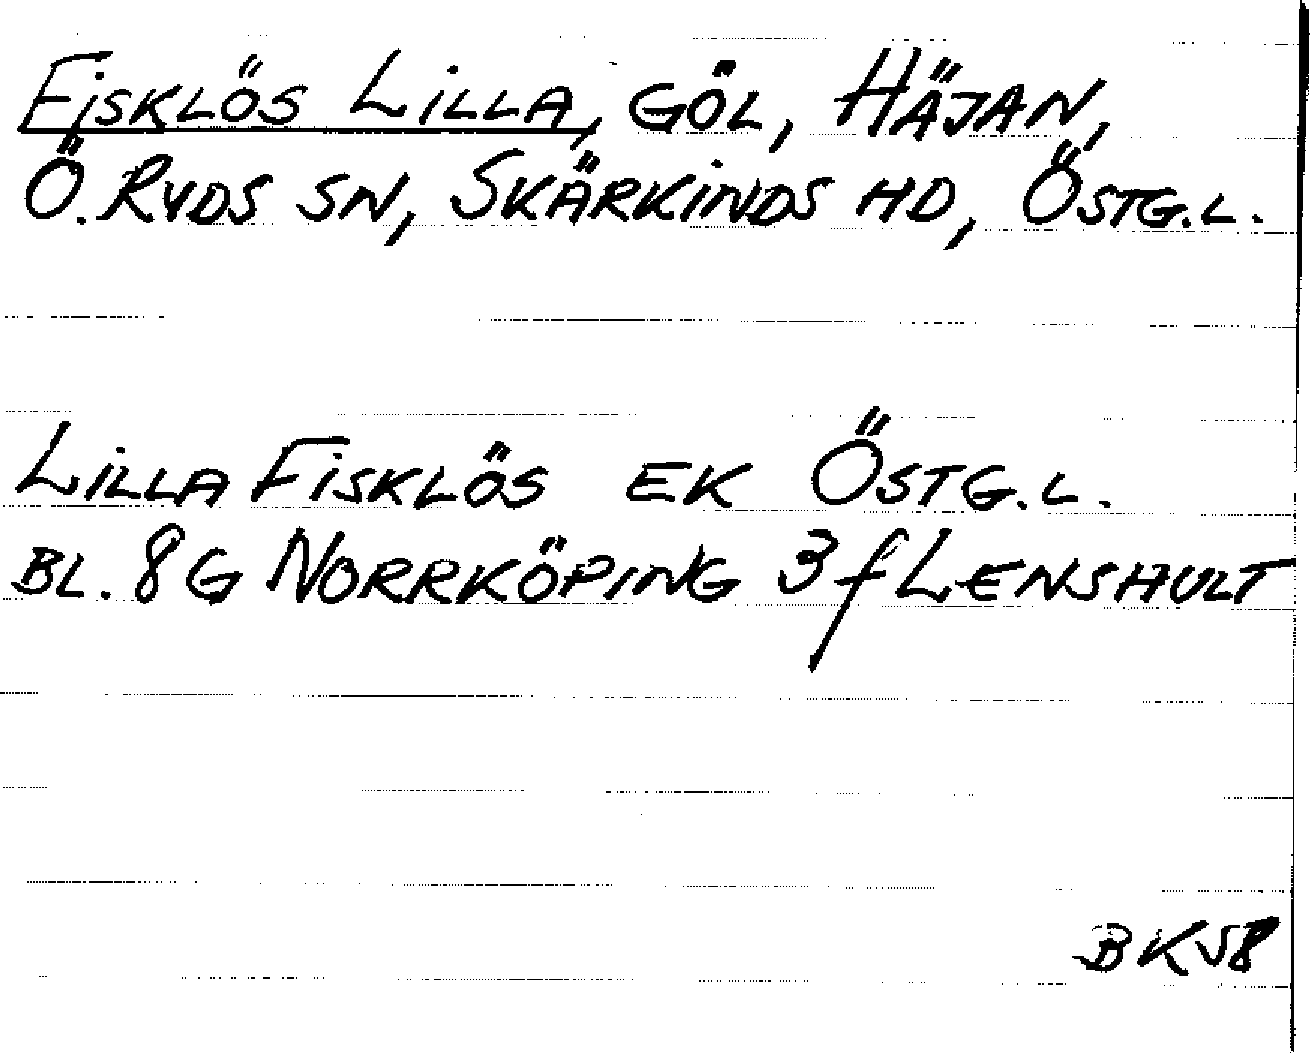 FISKLÖS LILLA, GÖL, HÄJAN,
Ö. RYDS SN, SKÄRKINDS HD, ÖSTG.L.
LILLA FISKLÖS EK ÖSTG.L.
BL. 8G NORRKÖPING 3f LENSHULT
BK58